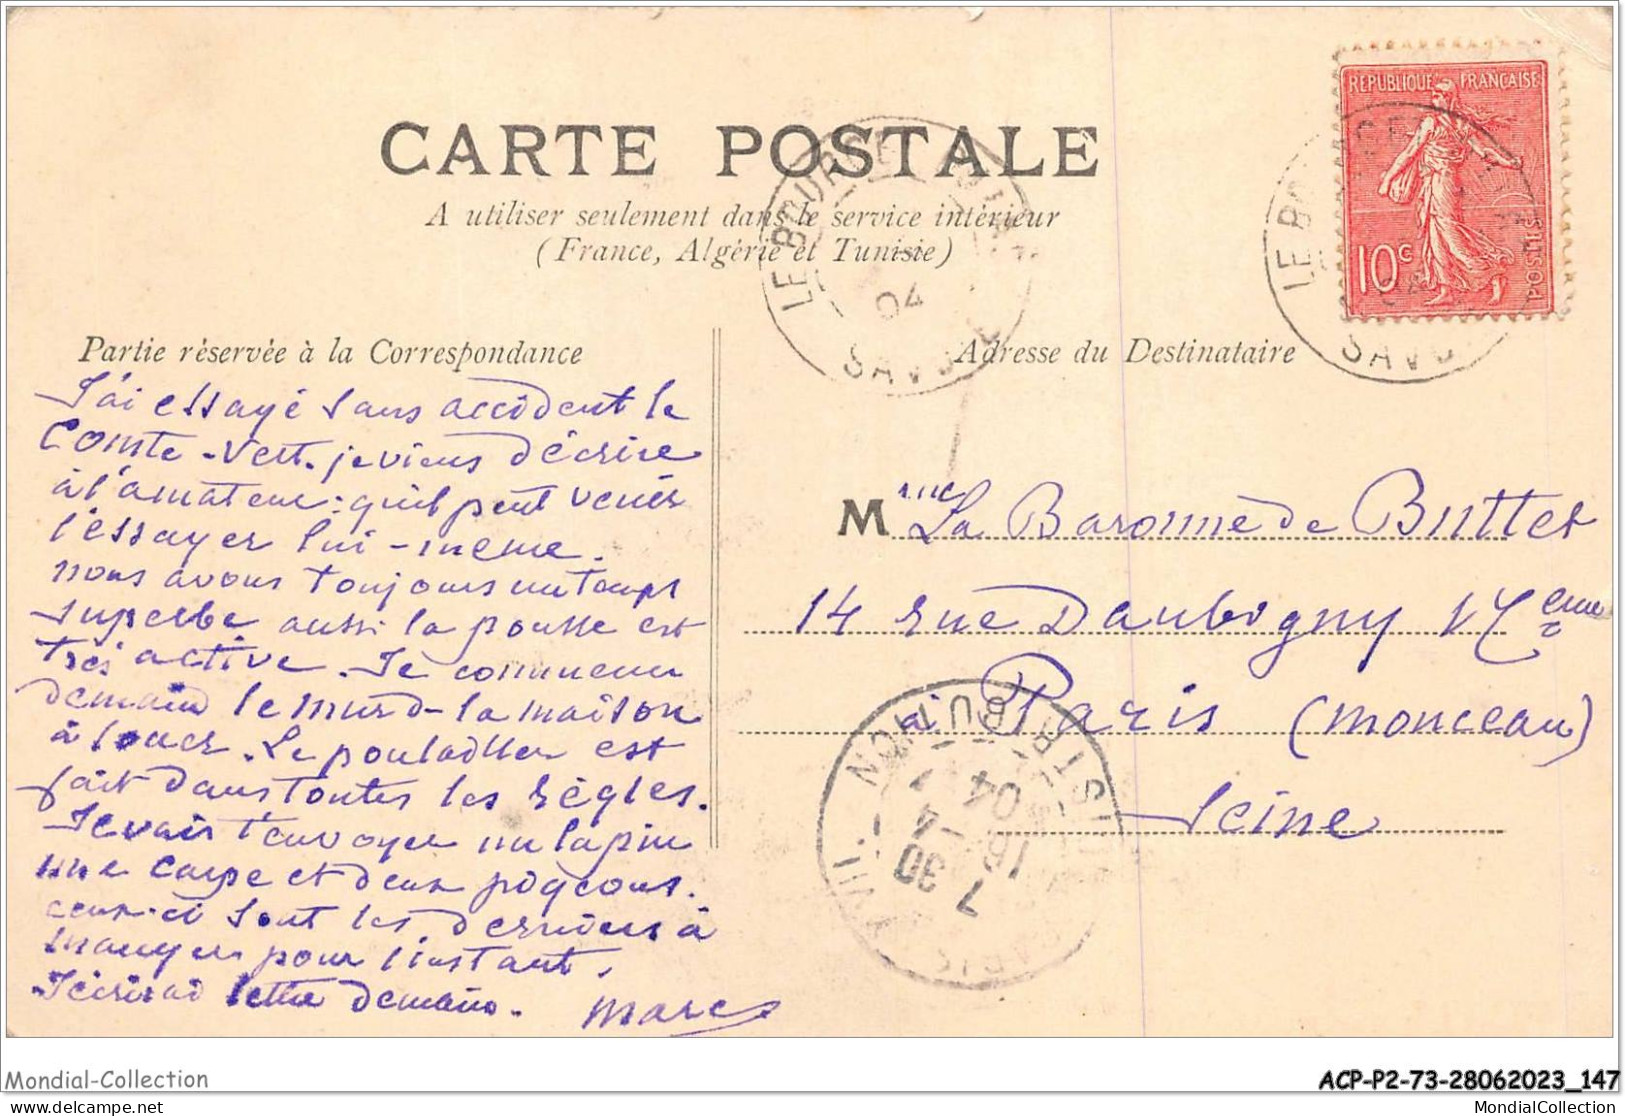 CARTE POSTALE
A utiliser seulement dans le service intérieur
(France, Algérie et Tunisie)
REPUBLIQUE FRANÇAISE
10c
POSTES
LE BOURGET
04
SAVOIE
LE BO
SAVO
Partie réservée à la Correspondance
J'ai essayé sans accident le
Comte-Vert. je viens d'écrire
à l'amateur: qu'il peut venir
l'essayer lui-même.
nous avons toujours un temps
superbe aussi la pousse est
très active. Je commence
demain le mur d- la maison
à louer. Le poulailler est
fait dans toutes les règles.
Je vais t'envoyer un lapin
une carpe et deux pigeons.
ceux-ci sont les derniers à
manger pour l'instant.
J'écrirai lettre demain.
Marc
Adresse du Destinataire
Mme La Baronne de Buttet
14 rue Daubigny
à Paris (Monceau)
Seine
PARIS XVII DISTRIBUTION
7 30
16 -4
04
Mondial-Collection
delcampe.net
ACP-P2-73-28062023_147
MondialCollection